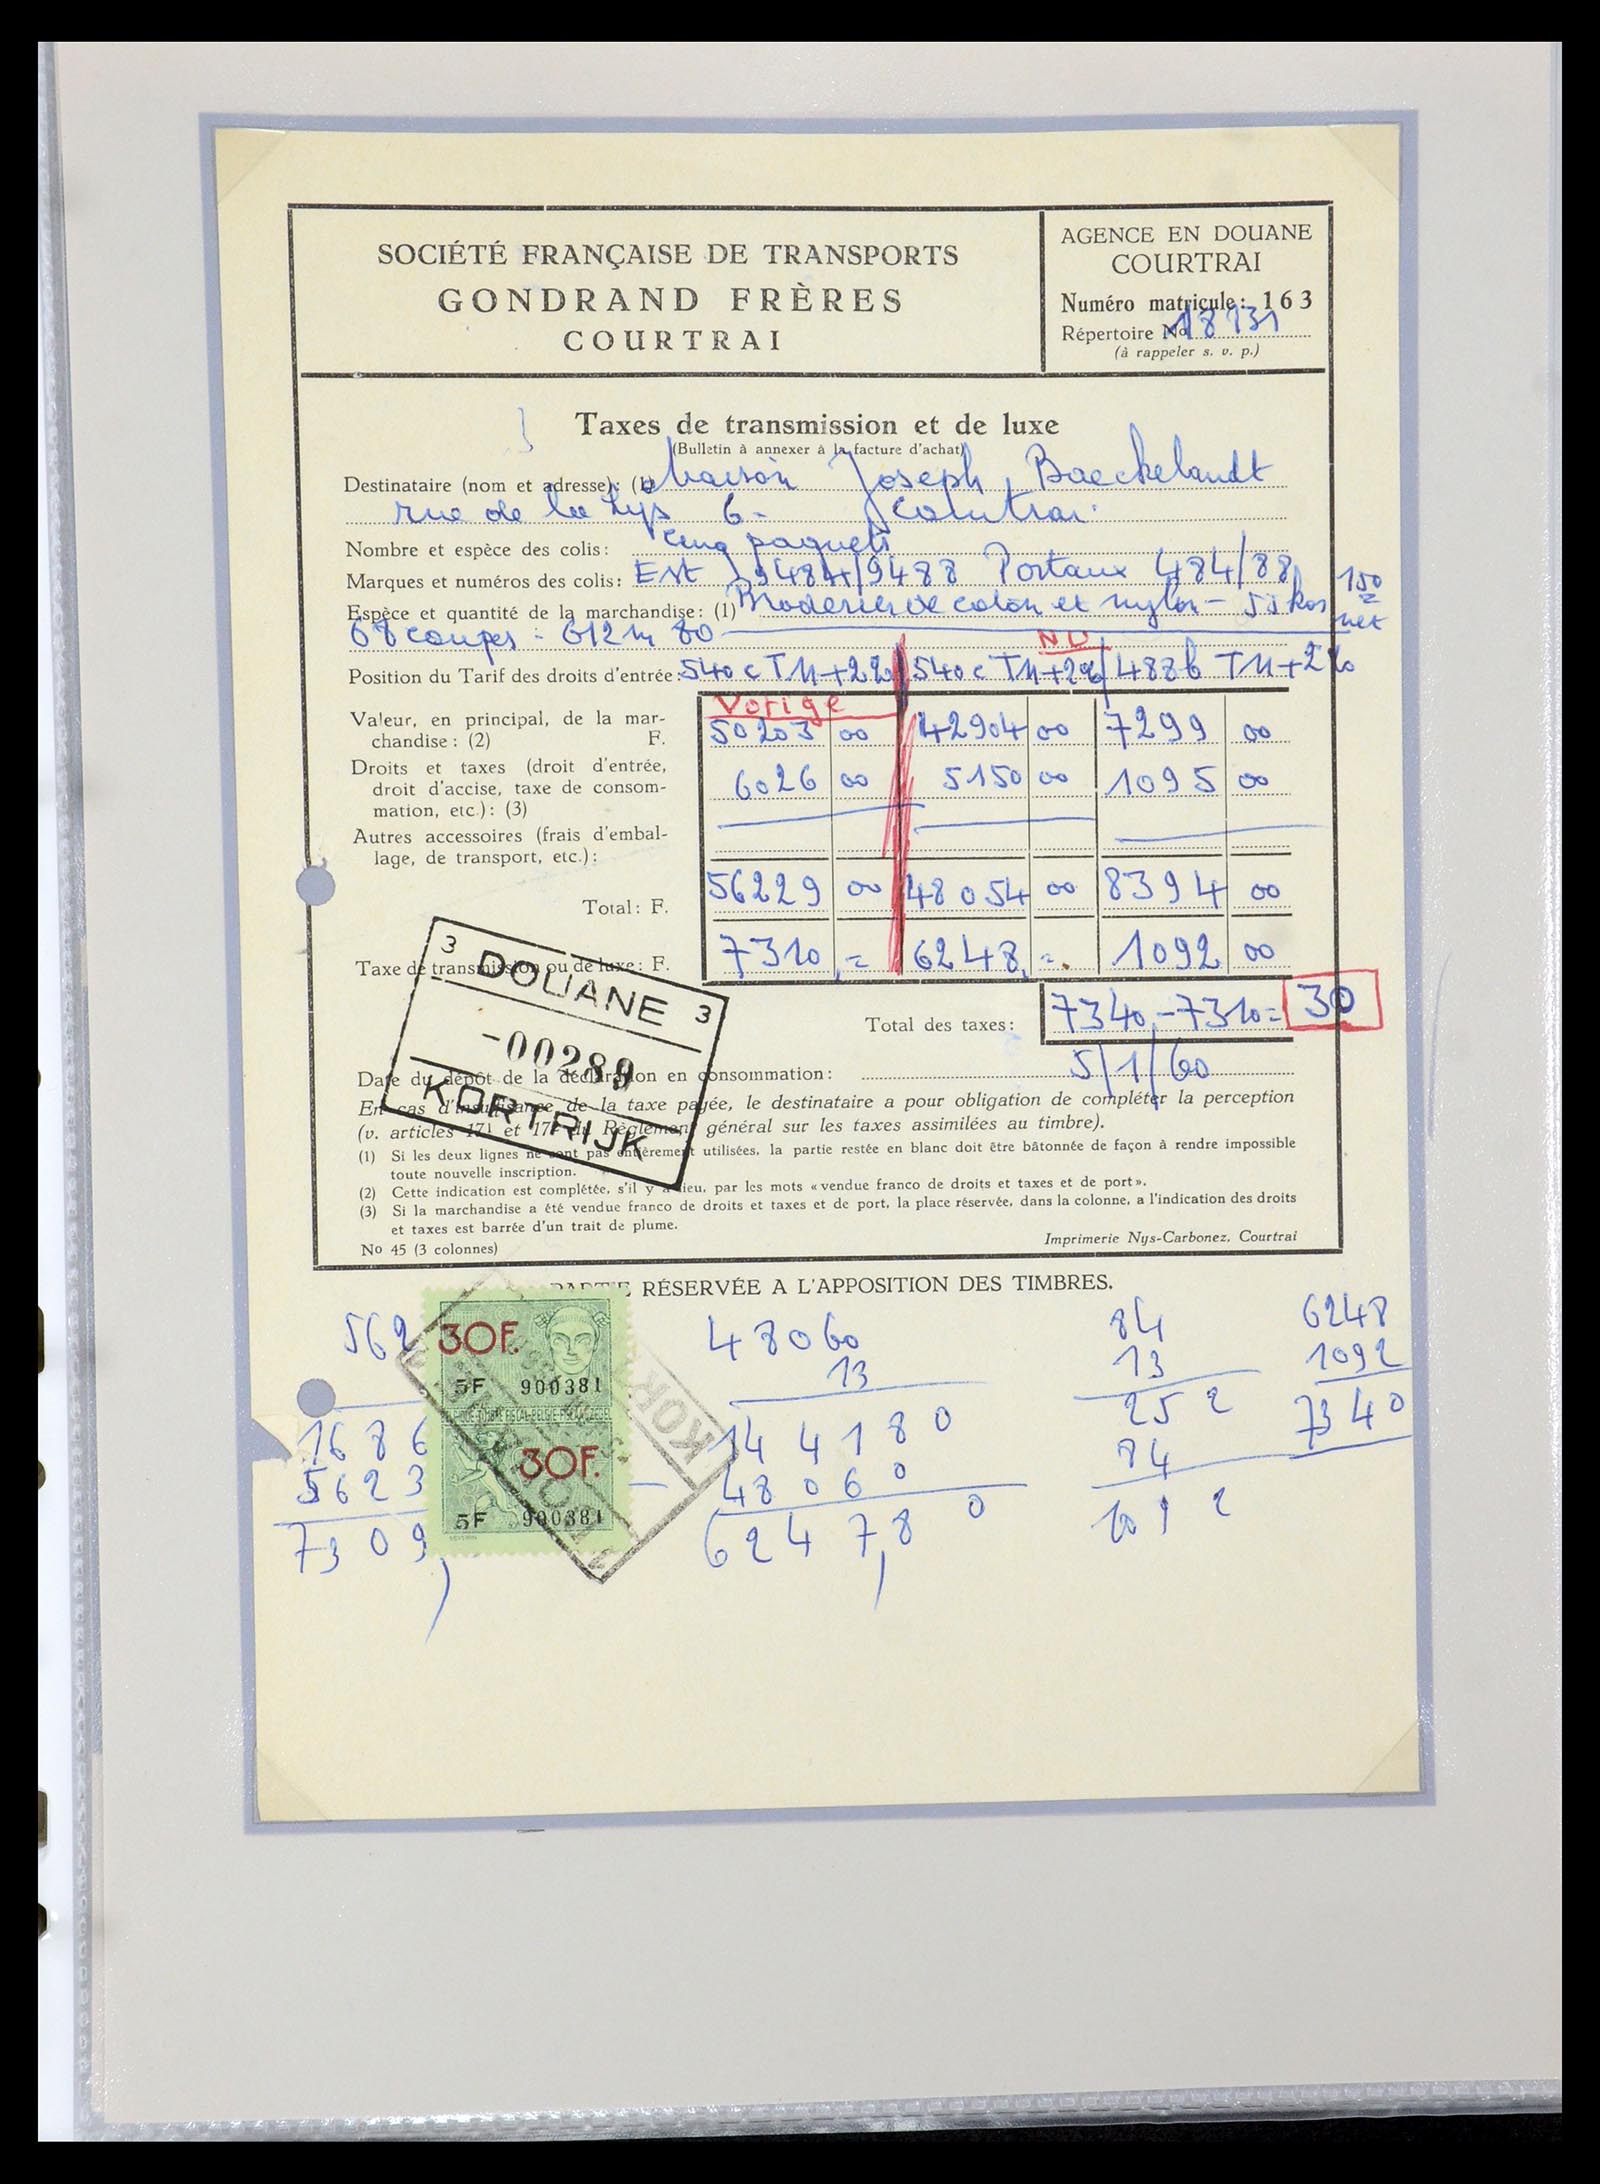 SOCIÉTÉ FRANÇAISE DE TRANSPORTS
GONDRAND FRÈRES
COURTRAI
AGENCE EN DOUANE
COURTRAI
Numéro matricule: 163
Répertoire No 18931
(à rappeler s. v. p.)
Taxes de transmission et de luxe
(Bulletin à annexer à la facture d'achat)
Destinataire (nom et adresse): (1) Maison Joseph Baeckelandt
rue de la Lys 6 - Courtrai
Nombre et espèce des colis: Cinq paquets
Marques et numéros des colis: EST 9484/9488 Portaux 484/88
Espèce et quantité de la marchandise: (1) Broderies de coton et nylon - 55 kos 150 net
68 coupes = 612 m 80
NU
Position du Tarif des droits d'entrée: 540 c TM+22% 540 c TM+2% 488 b TM+2%
Vorige
Valeur, en principal, de la marchandise: (2) F. 50203 00 42904 00 7299 00
Droits et taxes (droit d'entrée, droit d'accise, taxe de consommation, etc.): (3) 6026 00 5150 00 1095 00
Autres accessoires (frais d'emballage, de transport, etc.):
Total: F. 56229 00 48054 00 8394 00
Taxe de transmission ou de luxe: F. 7310,= 6248,= 1092 00
Total des taxes: 7340,-7310= 30
3 DOUANE 3
-00289
KORTRIJK
Date du dépôt de la déclaration en consommation: 5/1/60
En cas d'insuffisance de la taxe payée, le destinataire a pour obligation de compléter la perception
(v. articles 17¹ et 17² du Règlement général sur les taxes assimilées au timbre).
(1) Si les deux lignes ne sont pas entièrement utilisées, la partie restée en blanc doit être bâtonnée de façon à rendre impossible
toute nouvelle inscription.
(2) Cette indication est complétée, s'il y a lieu, par les mots «vendue franco de droits et taxes et de port».
(3) Si la marchandise a été vendue franco de droits et taxes et de port, la place réservée, dans la colonne, a l'indication des droits
et taxes est barrée d'un trait de plume.
No 45 (3 colonnes)
Imprimerie Nys-Carbonez, Courtrai
PARTIE RÉSERVÉE A L'APPOSITION DES TIMBRES.
562 48060 84 6248
13 13 1092
1686 144180 252 7340
5623 48060 84
7309, 6247,80 1092
30F.
5F 900381
30F.
5F 900381
KOR